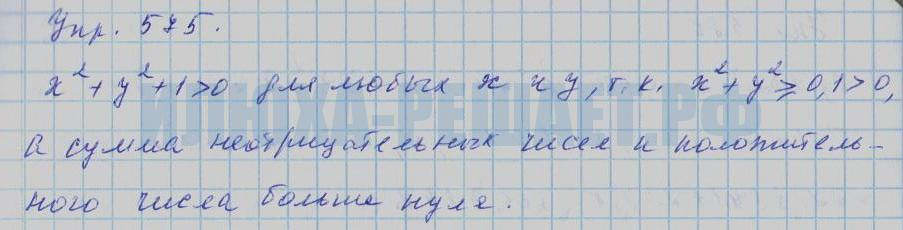 Упр. 575.
x² + y² + 1 > 0 для любых x и y, т.к. x² + y² ≥ 0, 1 > 0,
а сумма неотрицательных чисел и положитель-
ного числа больше нуля.
ИЛЮХА-РЕШАЕТ.РФ